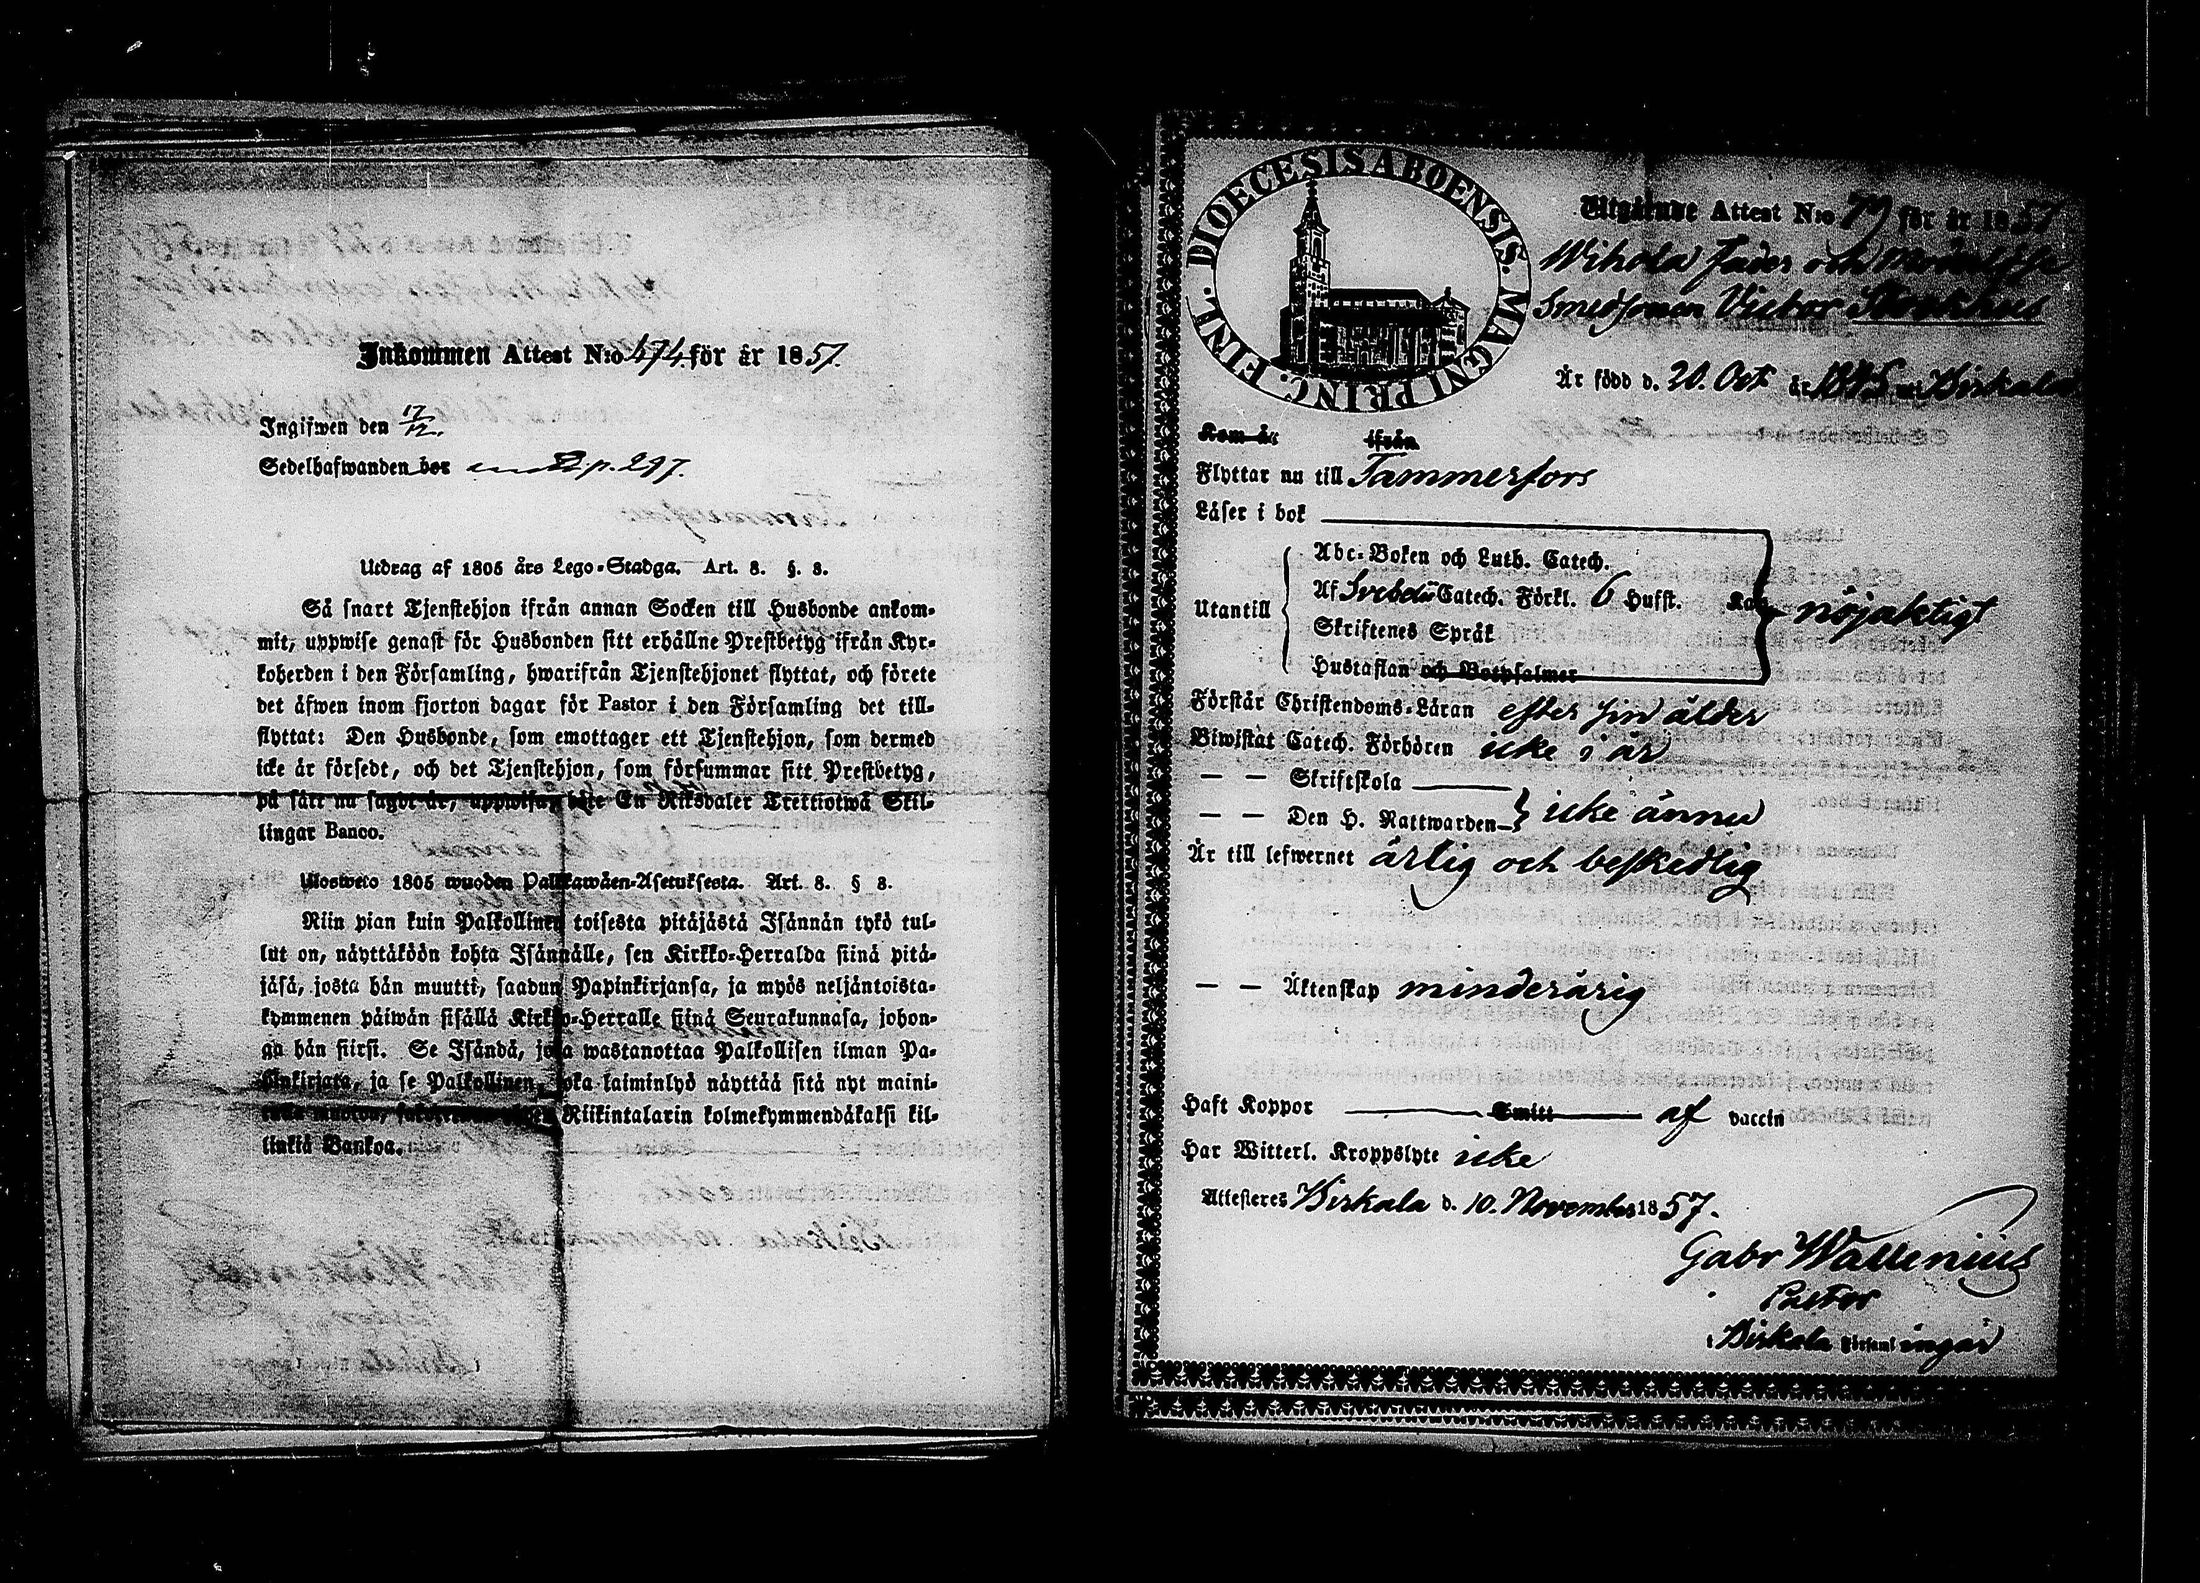 Inkommen Attest N:o 474 för år 1857.
Ingifwen den 17/12.
Sedelhafwanden bor p. 297.
Utdrag af 1805 års Lego-Stadga. Art. 8. §. 8.
Så snart Tjenstehjon ifrån annan Socken till Husbonde ankom-
mit, uppwise genast för Husbonden sitt erhållne Prestbetyg ifrån Kyr-
koherden i den Församling, hwarifrån Tjenstehjonet flyttat, och förete
det äfwen inom fjorton dagar för Pastor i den Församling det till-
flyttat: Den Husbonde, som emottager ett Tjenstehjon, som dermed
icke är försedt, och det Tjenstehjon, som försummar sitt Prestbetyg,
på sätt nu sagdt är, uppwisa, böte En Riksdaler Trettiotwå Skil-
lingar Banco.
Ulosweto 1805 wuoden Palkkawäen-Asetuksesta. Art. 8. § 8.
Niin pian kuin Palkollinen toisesta pitäjästä Isännän tykö tul-
lut on, näyttäköön kohta Isännälle, sen Kirkko-Herralda siinä pitä-
jäsä, josta hän muutti, saadun Papinkirjansa, ja myös neljäntoista-
kymmenen päiwän sisällä Kirkko-Herralle siinä Seurakunnasa, johon-
ga hän siirsi. Se Isändä, joka wastanottaa Palkollisen ilman Pa-
pinkirjata, ja se Palkollinen, joka laiminlyö näyttää sitä nyt maini-
Riikintalarin kolmekymmendäkaksi kil-
linkiä Bankoa.
DIOECESIS ABOENSIS. MAGNI PRINC. FINL.
Utgående Attest N:o 79 för år 1857
Wihola Fader och Moderlöse
Smedsonen Victor
Är född d. 20. Oct. år 1845 i Birkala
Kom år ifrån
Flyttar nu till Tammerfors
Läser i bok
Abc-Boken och Luth. Catech.
Utantill Af Svebelii Catech. Förkl. 6 Hufst. Kan nöjaktigt
Skriftenes Språk
Hustaflan och Botpsalmer
Förstår Christendoms-Läran efter sin ålder
Biwistat Catech. Förhören icke i år
— — Skriftskola
— — Den H. Nattwarden icke ännu
Är till lefwernet ärlig och beskedlig
— — Äktenskap minderårig
Haft Koppor Smitt af vaccin
Har Witterl. Kroppslyte icke
Attesteres Birkala d. 10. November 1857.
Gabr Wallenius
Pastor
i Birkala Församlingar